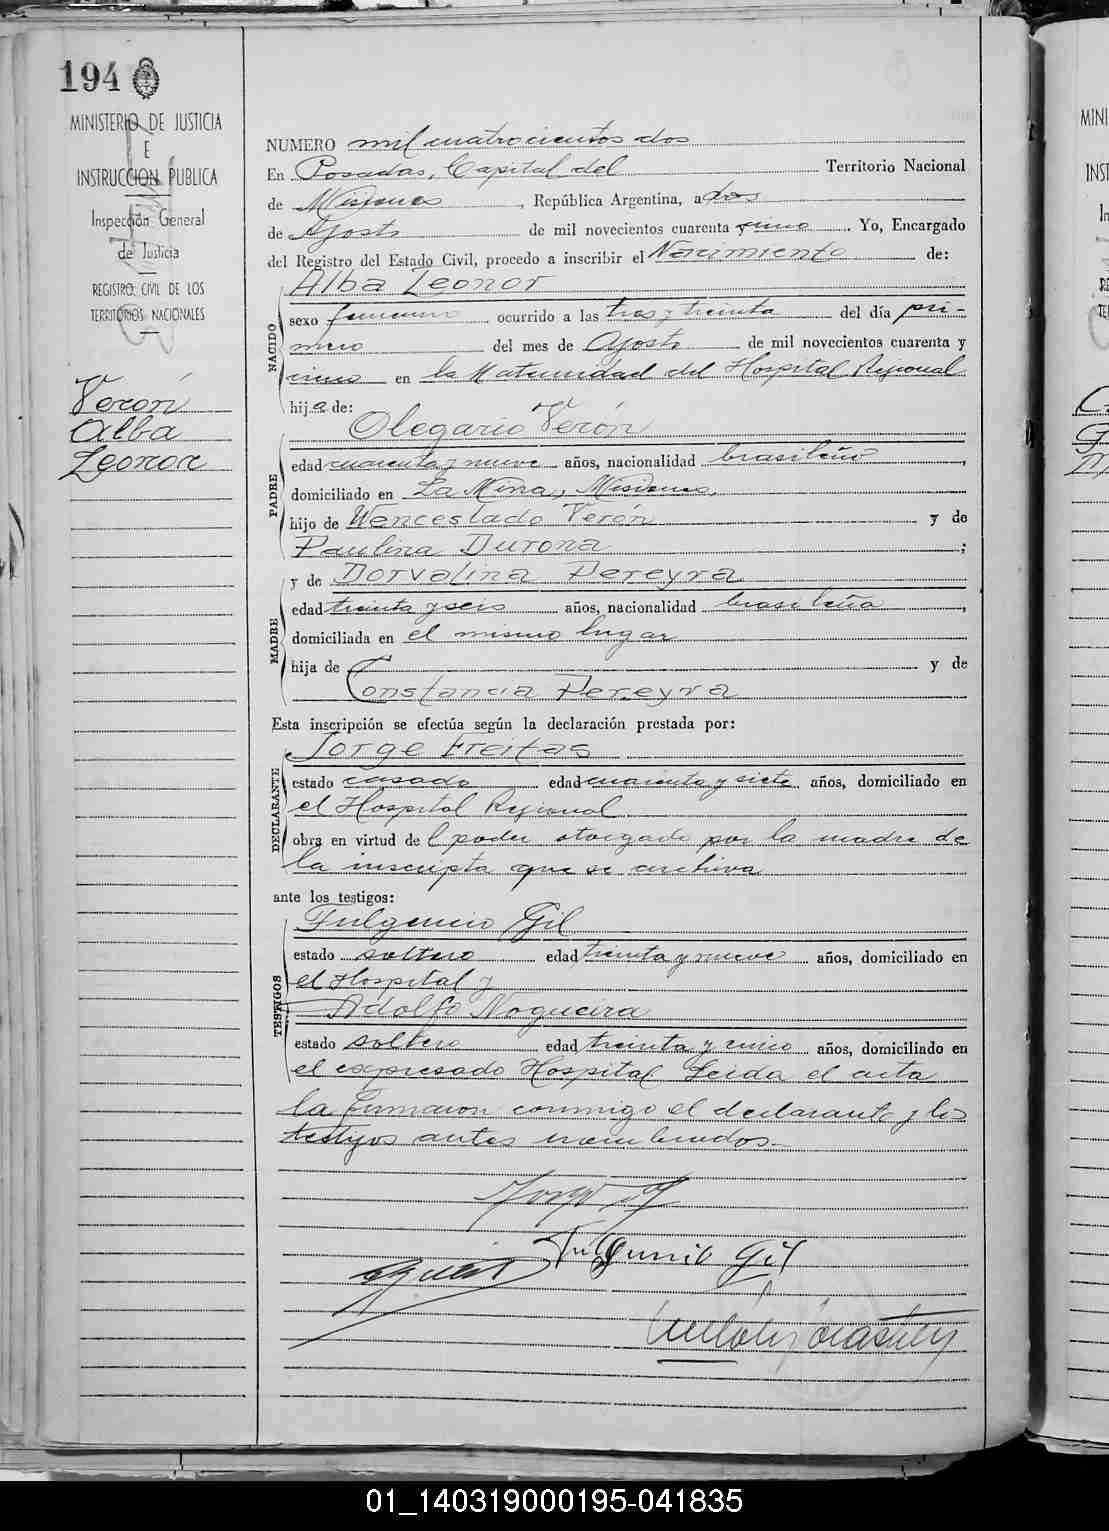 194
MINISTERIO DE JUSTICIA
E
INSTRUCCION PUBLICA
Inspección General
de Justicia
REGISTRO CIVIL DE LOS
TERRITORIOS NACIONALES
Verón
Alba
Leonor
NUMERO mil cuatrocientos dos
En Posadas, Capital del Territorio Nacional
de Misiones, República Argentina, a dos
de Agosto de mil novecientos cuarenta y cinco. Yo, Encargado
del Registro del Estado Civil, procedo a inscribir el Nacimiento de:
NACIDO
Alba Leonor
sexo femenino ocurrido a las tres y treinta del día pri-
mero del mes de Agosto de mil novecientos cuarenta y
cinco en la Maternidad del Hospital Regional
hija de:
PADRE
Olegario Verón
edad cuarenta y nueve años, nacionalidad brasileño,
domiciliado en La Mina, Misiones,
hijo de Wenceslado Verón y de
Paulina Durona;
MADRE
y de Dorvalina Pereyra
edad treinta y seis años, nacionalidad brasileña,
domiciliada en el mismo lugar
hija de y de
Constancia Pereyra
Esta inscripción se efectúa según la declaración prestada por:
DECLARANTE
Jorge Freitas
estado casado edad cuarenta y siete años, domiciliado en
el Hospital Regional
obra en virtud del poder otorgado por la madre de
la inscripta que se archiva
ante los testigos:
TESTIGOS
Fulgencio Gil
estado soltero edad treinta y nueve años, domiciliado en
el Hospital y
Adolfo Nogueira
estado soltero edad treinta y cinco años, domiciliado en
el expresado Hospital Leida el acta
la firmaron conmigo el declarante y los
testigos antes nombrados.-
Fulgencio Gil
01_140319000195-041835